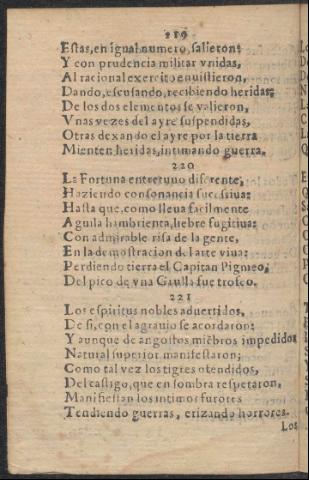 219
Estas, en igual numero, salieron;
Y con prudencia militar vnidas,
Al racional exercito enuistieron,
Dando, escusando, recibiendo heridas;
De los dos elementos se valieron,
Vnas vezes del ayre suspendidas,
Otras dexando el ayre por la tierra
Mienten heridas, intimando guerra.
220
La Fortuna entretuuo diferente;
Haziendo consonancia sucessiua:
Hasta que, como lleua facilmente
Aguila hambrienta, liebre fugitiua:
Con admirable risa de la gente,
En la demostracion del arte viua:
Perdiendo tierra el Capitan Pigmeo,
Del pico de vna Gaulla fue trofeo.
221
Los espiritus nobles aduertidos,
De si, con el agrauio se acordaron:
Y aunque de angostos miẽbros impedidos
Natural superior manifestaron;
Como tal vez los tigres ofendidos,
Del castigo, que en sombra respetaron,
Manifiestan los intimos furores
Tendiendo guerras, erizando horrores.
Los